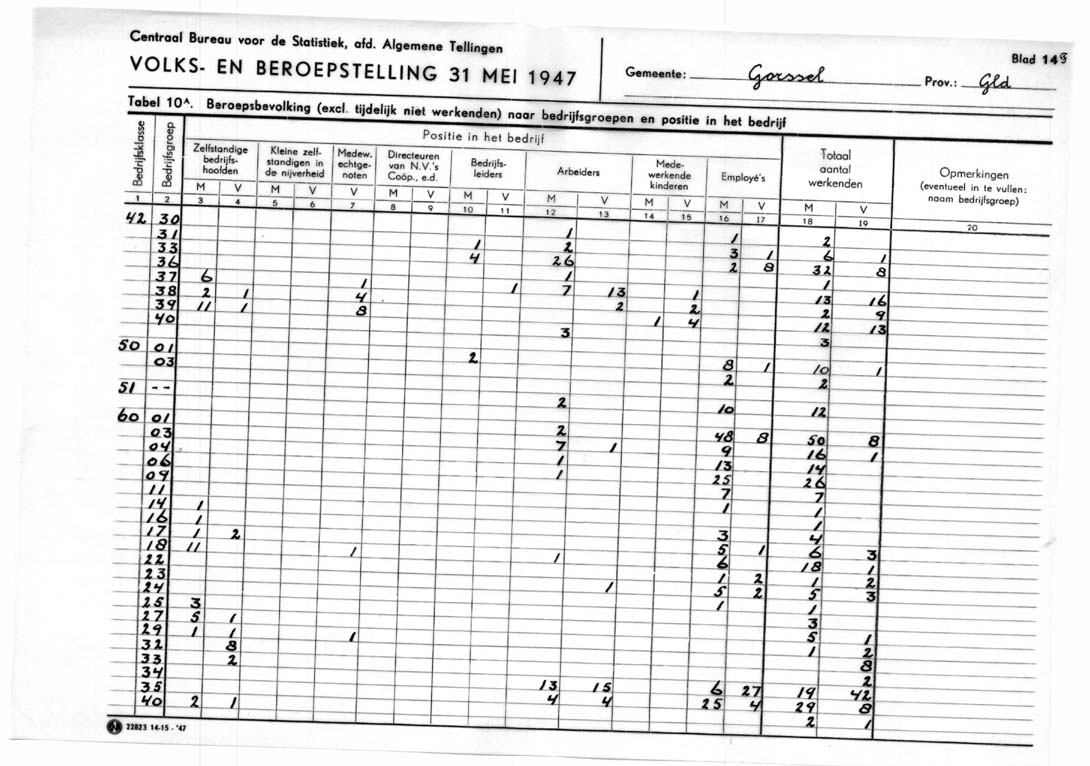 Centraal Bureau voor de Statistiek, afd. Algemene Tellingen
VOLKS- EN BEROEPSTELLING 31 MEI 1947
Gemeente: Gorssel Prov.: Gld Blad 14
Tabel 10A. Beroepsbevolking (excl. tijdelijk niet werkenden) naar bedrijfsgroepen en positie in het bedrijf
Bedrijfsklasse Bedrijfsgroep Positie in het bedrijf
Zelfstandige bedrijfs-hoofden Kleine zelf-standigen in de nijverheid Medew. echtge-noten Directeuren van N.V.'s Coöp., e.d. Bedrijfs-leiders Arbeiders Mede-werkende kinderen Employé's Totaal aantal werkenden Opmerkingen (eventueel in te vullen: naam bedrijfsgroep)
M V M V V M V M V M V M V M V M V
1 2 3 4 5 6 7 8 9 10 11 12 13 14 15 16 17 18 19 20
42 30 1 1 2
31 1 2 3 1 6 1
33 4 26 2 8 32 8
36 1 1
37 6 1 1 7 13 1 13 16
38 2 1 4 2 2 2 9
39 11 1 8 1 4 12 13
40 3 3
50 01 2 8 1 10 1
03 2 2
51 -- 2 10 12
60 01 2 48 8 50 8
03 7 1 9 16 1
04 1 13 14
06 1 25 26
09 7 7
11 1 1
14 1 1
16 1 3 4
17 1 2 5 1 6 3
18 11 1 1 6 18 1
22 1 2 1 2
23 1 5 2 5 3
24 1 1
25 3 3
27 5 1 5 1
29 1 1 1 1 2
32 8 8
33 2 2
34 13 15 6 27 19 42
35 4 4 25 4 29 8
40 2 1 2 1
22823 14-15 - '47